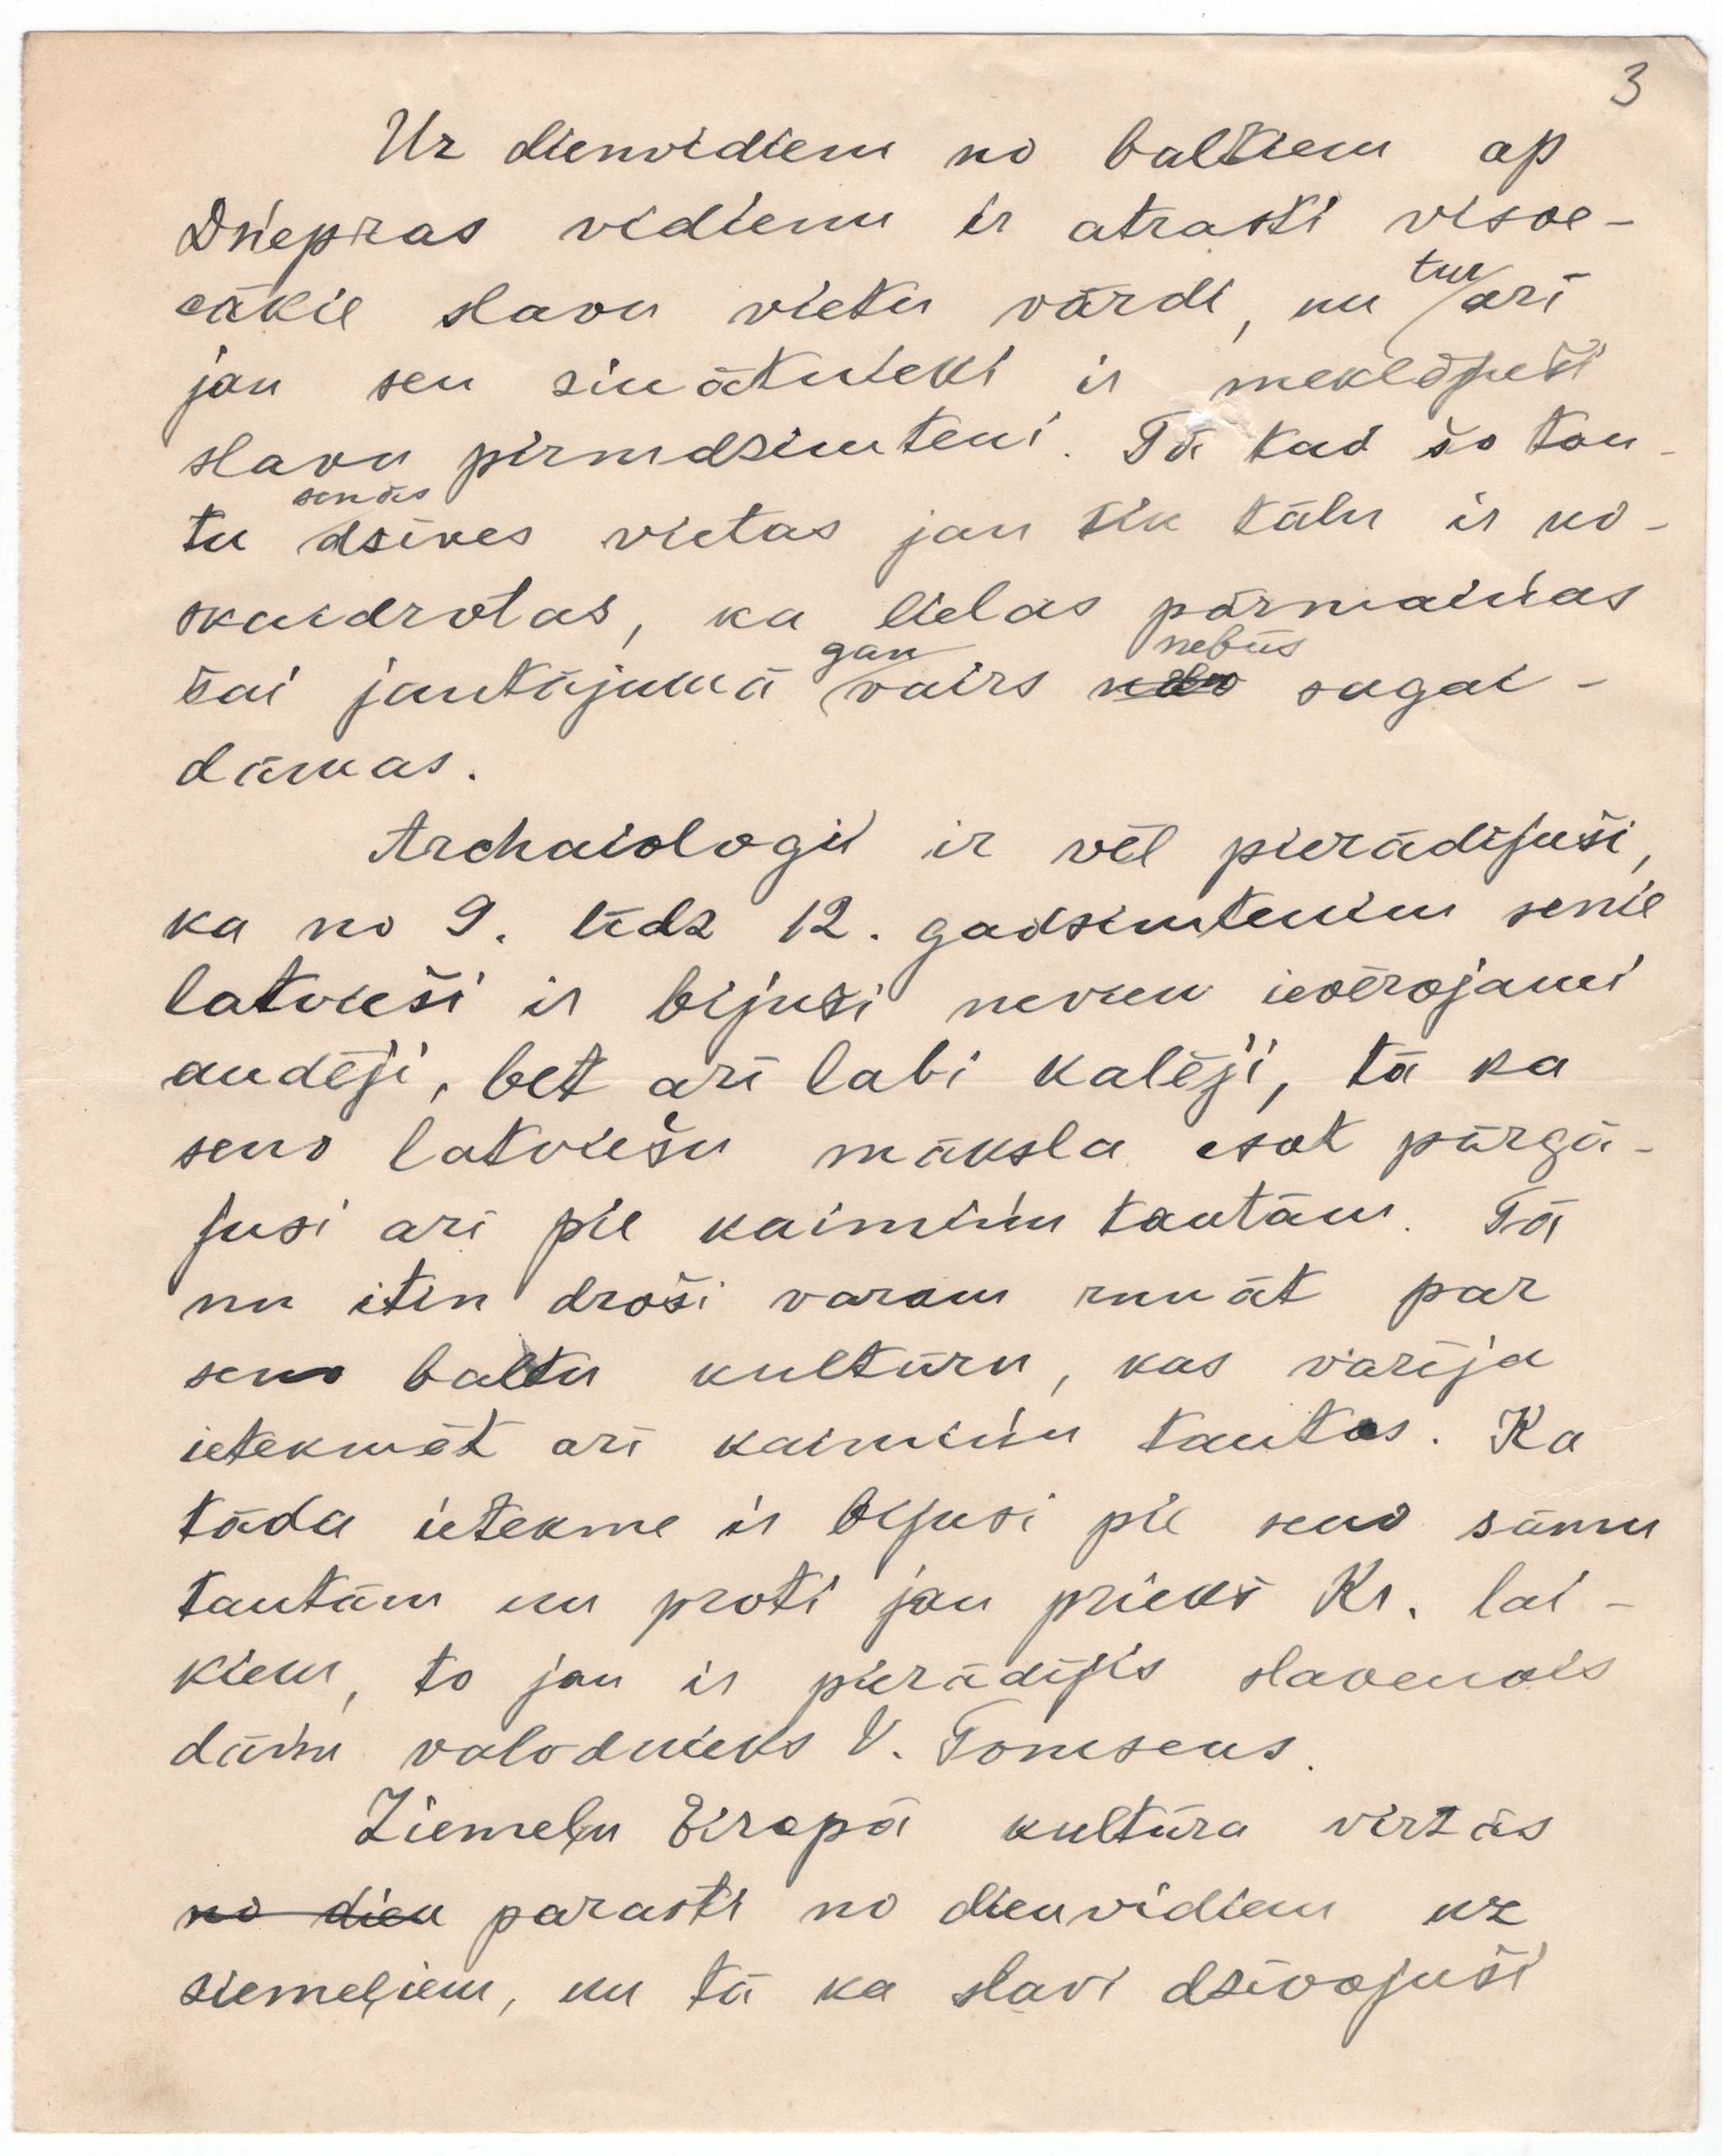 3
Uz dienvidiem no baltiem ap
Dņepras vidieni ir atrasti visve-
cākie slavu vietu vārdi, un tur arī
jau sen zinātnieki ir meklējuši
slavu pirmdzimteni. Tā kad šo tau-
tu senās dzīves vietas jau tik tālu ir no-
skaidrotas, ka lielas pārmaiņas
šai jautājumā gan vairs nebūs sagai-
dāmas.
Archaiologi ir vēl pierādījuši,
ka no 9. līdz 12. gadsimtenim senie
latvieši ir bijuši nevien ievērojami
audēji, bet arī labi kalēji, tā ka
seno latviešu māksla esot pārgā-
jusi arī pie kaimiņu tautām. Tā
nu itin droši varam runāt par
seno baltu kultūru, kas varēja
ietekmēt arī kaimiņu tautas. Ka
tāda ietekme ir bijusi pie seno sāmu
tautām un proti jau priekš Kr. lai-
kiem, to jau ir pierādījis slavenais
dāņu valodnieks V. Tomsens.
Ziemeļu Eiropā kultūra virzās
no dien parasti no dienvidiem uz
ziemeļiem, un tā ka slavi dzīvojuši